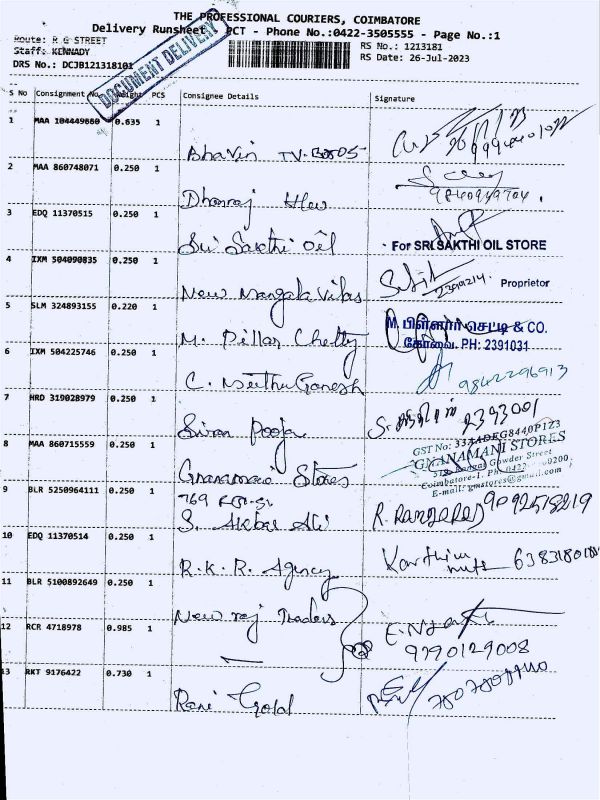 THE PROFESSIONAL COURIERS, COIMBATORE
Delivery Runsheet PCT - Phone No.:0422-3505555 - Page No.:1
Route: R G STREET
RS No.: 1213181
Staff: KENNADY
RS Date: 26-Jul-2023
DRS No.: DCJB121318101
DOCUMENT DELIVERY
S No Consignment No. Weight PCS Consignee Details Signature
1 MAA 104449680 0.635 1
Bhavin TV
2 MAA 860748071 0.250 1
Dhanraj
9840949704
3 EDQ 11370515 0.250 1
Sri Sakthi Oil
For SRI SAKTHI OIL STORE
4 IXM 504090835 0.250 1
2399214
Proprietor
New Mangala Vilas
5 SLM 324893155 0.220 1
M. பிள்ளார் செட்டி & CO.
கோவை. PH: 2391031
M. Pillar Chetty
6 IXM 504225746 0.250 1
C. Muthu Ganesh
9842296913
7 HRD 319028979 0.250 1
2393001
Sivan Pooja
GST No: 33AADEG8440P1Z3
GNANAMANI STORES
8 MAA 860715559 0.250 1
Gowder Street
Coimbatore-1. Ph: 0422
E-mail: gmstores@gmail.com
Gnanamani Stores
9 BLR 5250964111 0.250 1
769
S. Akbar Ali
R. Rangaraj 9092578219
10 EDQ 11370514 0.250 1
Karthim
R.K.R. Agency
11 BLR 5100892649 0.250 1
New raj Traders
12 RCR 4718978 0.985 1
9790129008
13 RKT 9176422 0.730 1
Rani Gold